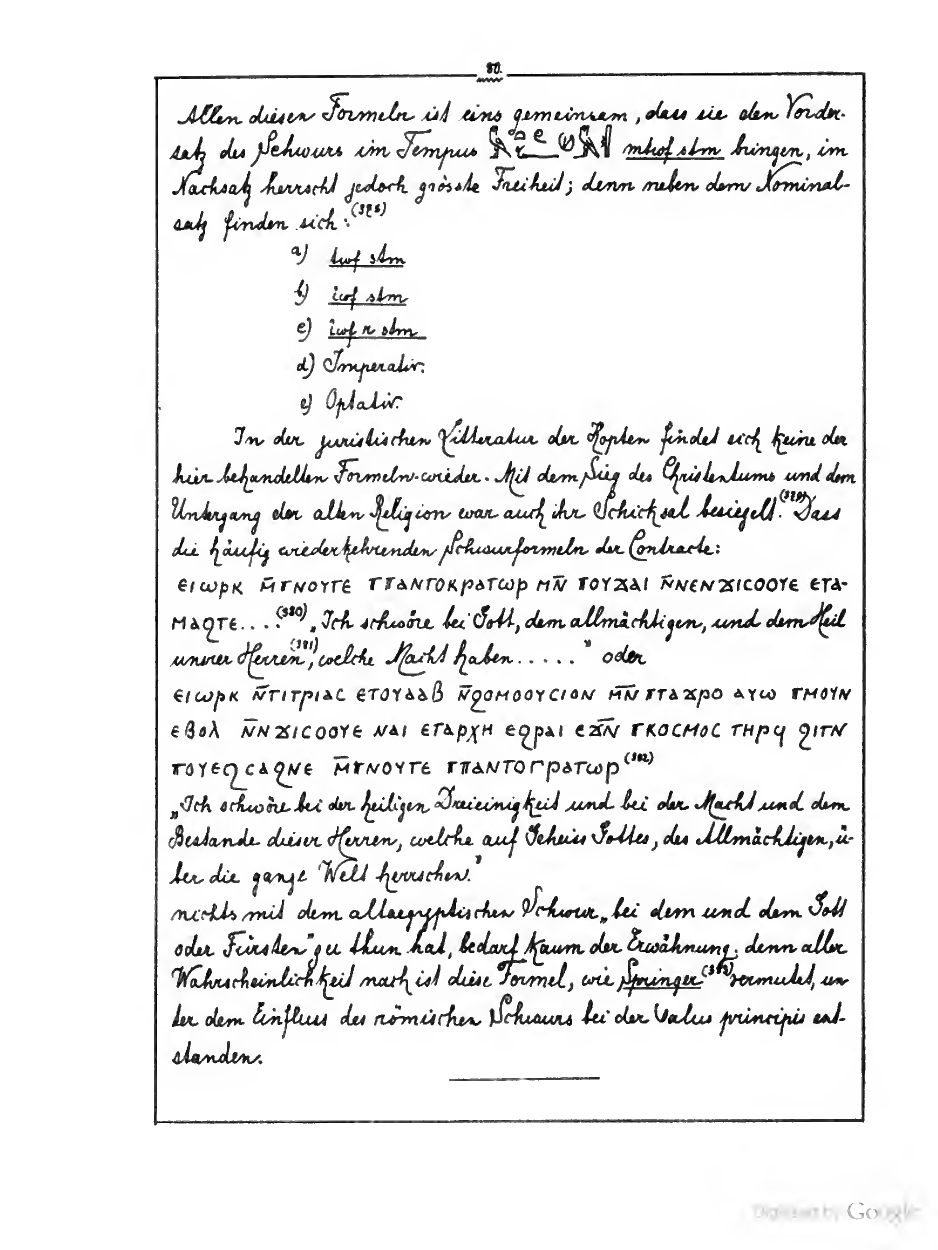 80.
Allen diesen Formeln ist eins gemeinsam, dass sie den Vorder-
satz des Schwurs im Tempus mtwf stm bringen, im
Nachsatz herrscht jedoch grösste Freiheit; denn neben dem Nominal-
satz finden sich:
a) twf stm
b) iwf stm
c) iwf r stm
d) Imperativ.
e) Optativ.
In der juristischen Litteratur der Kopten findet sich keine der
hier behandelten Formeln wieder. Mit dem Sieg des Christentums und dem
Untergang der alten Religion war auch ihr Schicksal besiegelt. Dass
die häufig wiederkehrenden Schwurformeln der Contracte:
ⲉⲓⲱⲣⲕ ⲙ̄ⲡⲛⲟⲩⲧⲉ ⲡⲡⲁⲛⲧⲟⲕⲣⲁⲧⲱⲣ ⲙⲛ̄ ⲡⲟⲩϫⲁⲓ ⲛ̄ⲛⲉⲛϫⲓⲥⲟⲟⲩⲉ ⲉⲧⲁ-
ⲙⲁϩⲧⲉ....(380) „Ich schwöre bei Gott, dem allmächtigen, und dem Heil
unsrer Herren(381), welche Macht haben....." oder
ⲉⲓⲱⲣⲕ ⲛ̄ⲧⲓⲧⲣⲓⲁⲥ ⲉⲧⲟⲩⲁⲁⲃ ⲛ̄ϩⲟⲙⲟⲟⲩⲥⲓⲟⲛ ⲙⲛ̄ ⲡⲧⲁϫⲣⲟ ⲁⲩⲱ ⲡⲙⲟⲩⲛ
ⲉⲃⲟⲗ ⲛ̄ⲛϫⲓⲥⲟⲟⲩⲉ ⲛⲁⲓ ⲉⲧⲁⲣⲭⲏ ⲉϩⲣⲁⲓ ⲉϫⲛ̄ ⲡⲕⲟⲥⲙⲟⲥ ⲧⲏⲣϥ ϩⲓⲧⲛ
ⲡⲟⲩⲉϩⲥⲁϩⲛⲉ ⲙ̄ⲡⲛⲟⲩⲧⲉ ⲡⲡⲁⲛⲧⲟⲅⲣⲁⲧⲱⲣ(382)
„Ich schwöre bei der heiligen Dreieinigkeit und bei der Macht und dem
Bestande dieser Herren, welche auf Geheiss Gottes, des Allmächtigen, ü-
ber die ganze Welt herrschen."
nichts mit dem altaegyptischen Schwur „bei dem und dem Gott
oder Fürsten" zu thun hat, bedarf kaum der Erwähnung; denn aller
Wahrscheinlichkeit nach ist diese Formel, wie Springer(383) vermutet, un
ter dem Einfluss des römischen Schwurs bei der Salus principis ent-
standen.
Digitized by Google